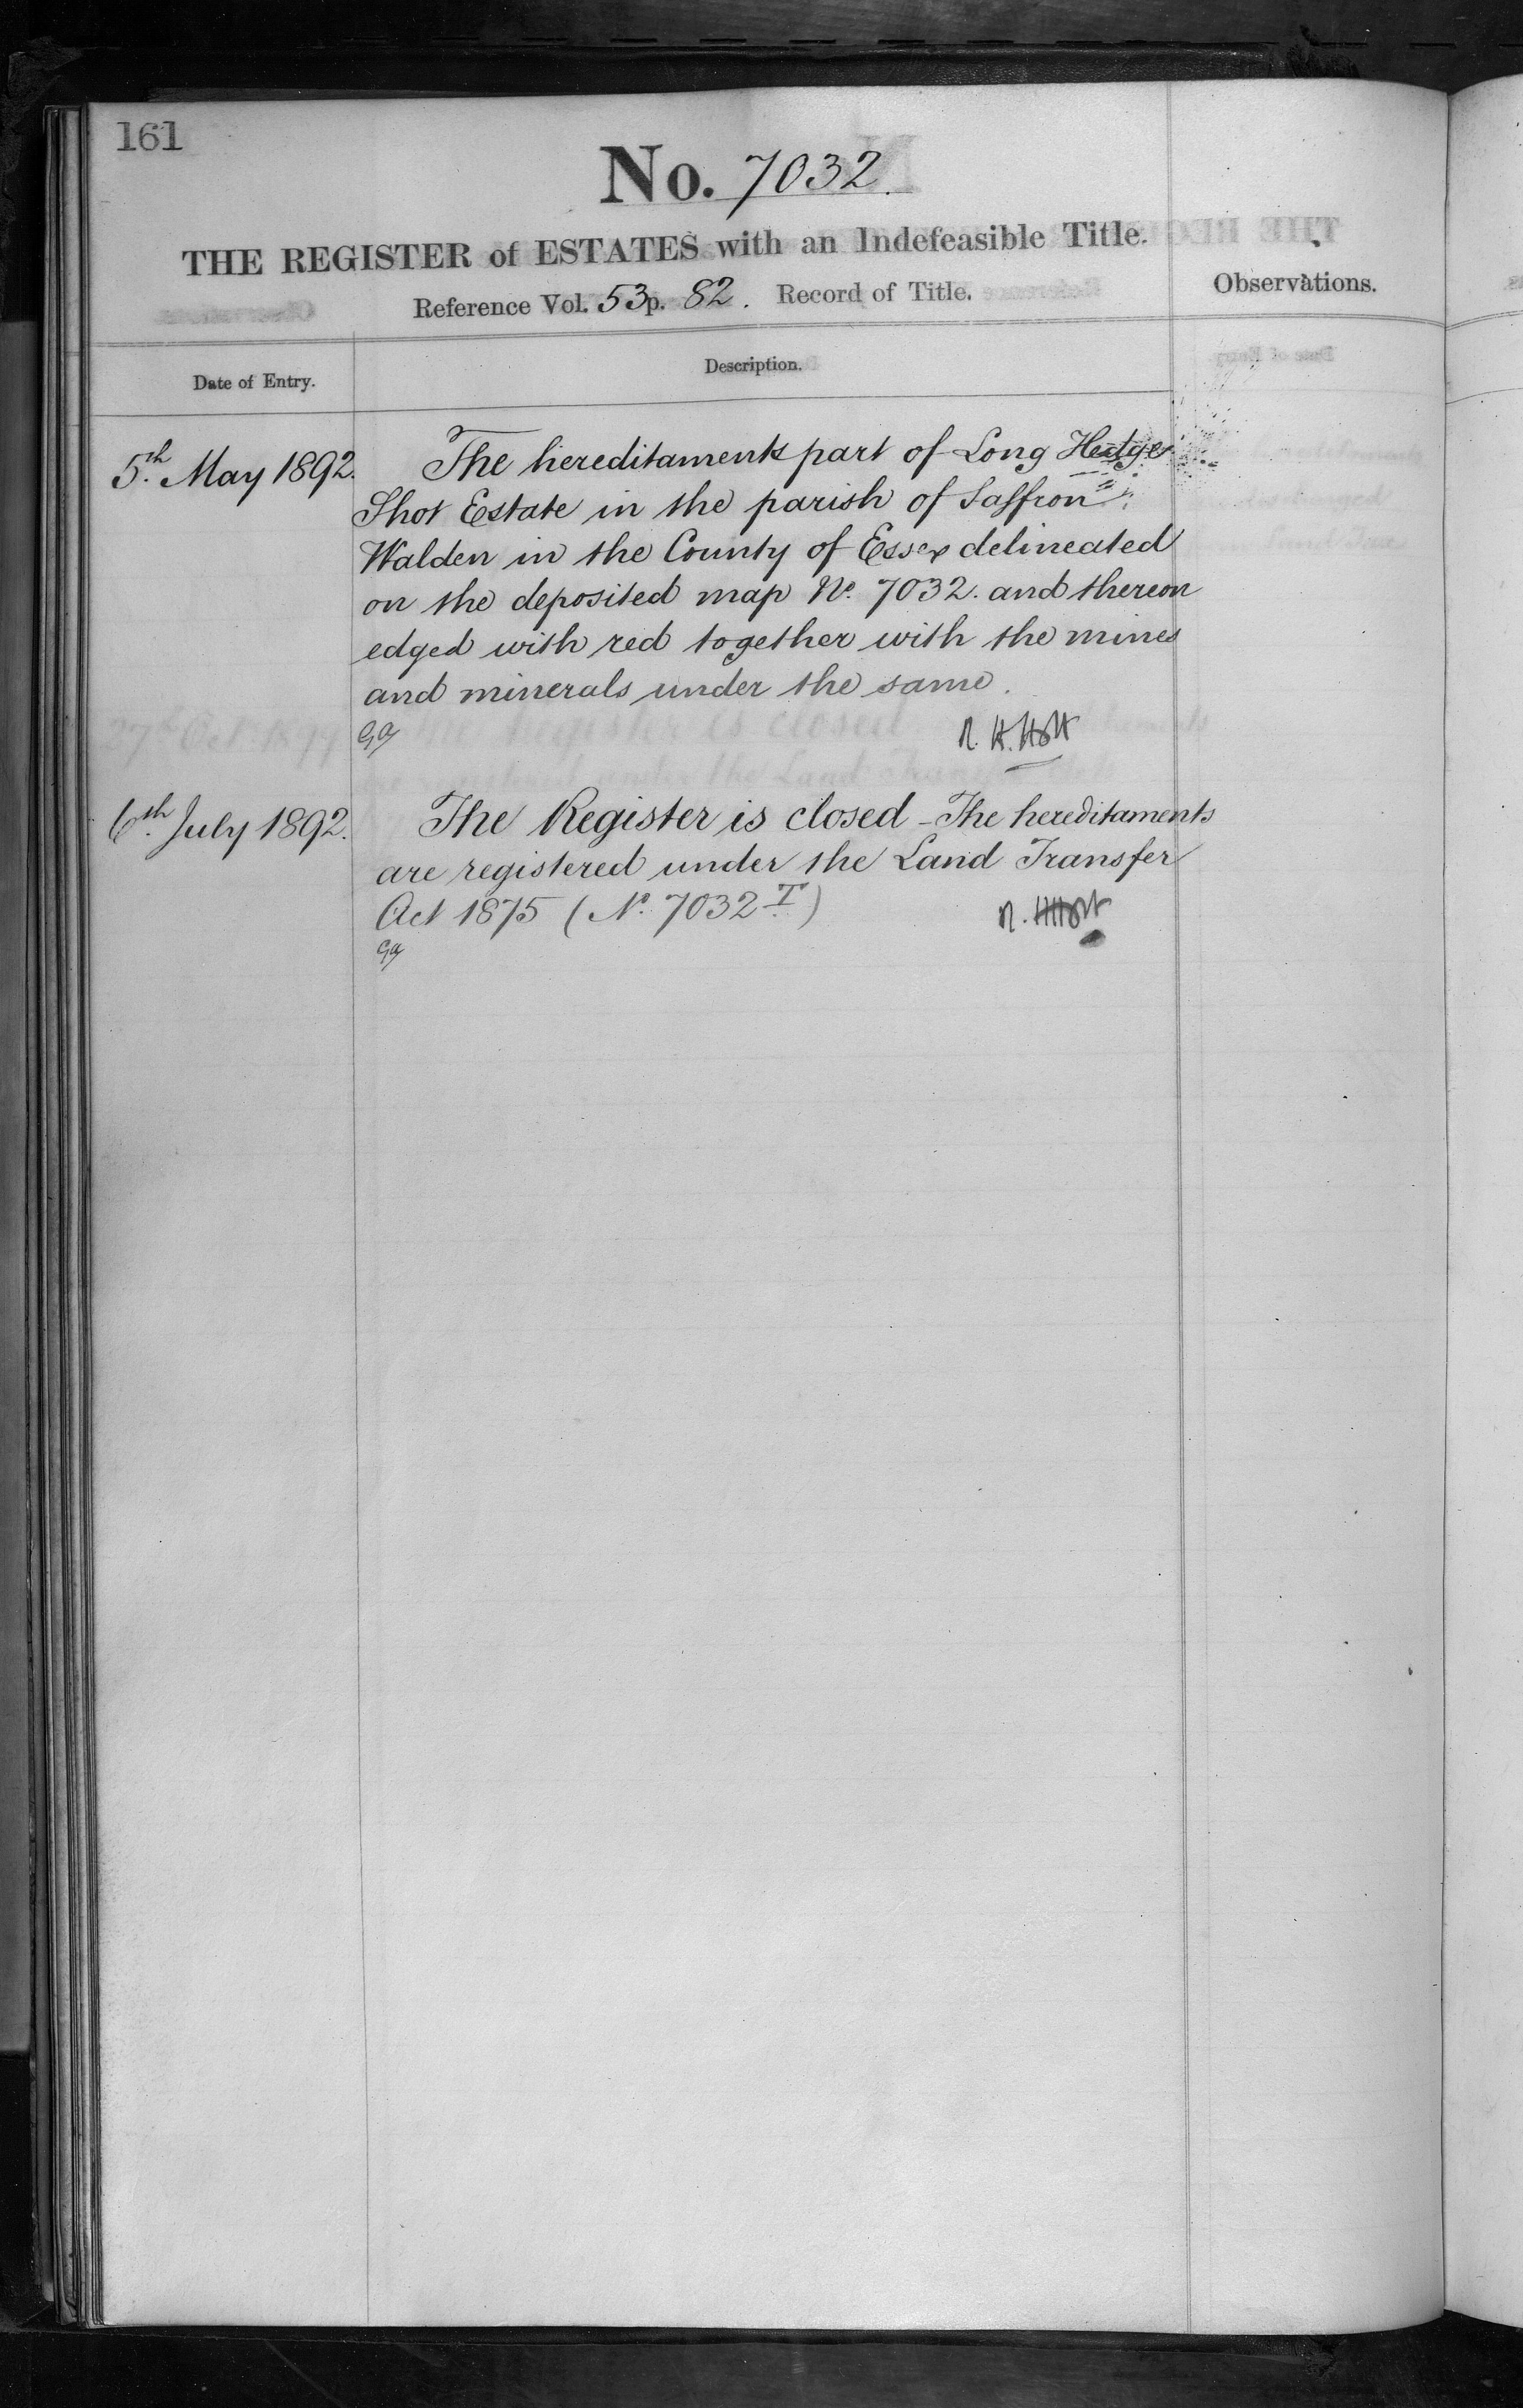 161
No. 7032.
THE REGISTER of ESTATES with an Indefeasible Title.
Reference Vol. 53 p. 82. Record of Title.
Observations.
Date of Entry.
Description.
5th May 1892.
The hereditaments part of Long Hedge
Shot Estate in the parish of Saffron
Walden in the County of Essex delineated
on the deposited map No. 7032. and thereon
edged with red together with the mines
and minerals under the same.
R. H. Holt
6th July 1892.
The Register is closed - The hereditaments
are registered under the Land Transfer
Act 1875 (No. 7032 T.)
R. H. Holt